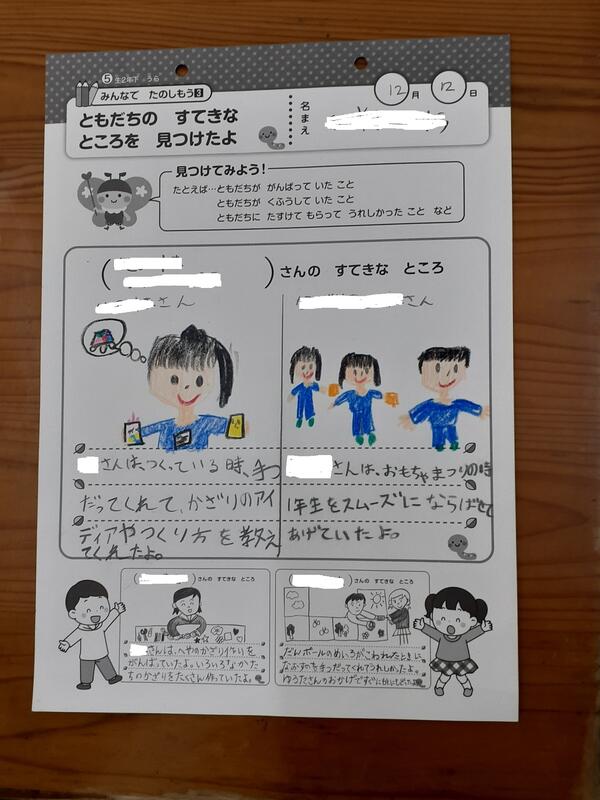 ⑤生2年下 うら
みんなで たのしもう③
ともだちの すてきな
ところを 見つけたよ
名まえ
12月 12日
見つけてみよう!
たとえば…ともだちが がんばって いた こと
ともだちが くふうして いた こと
ともだちに たすけて もらって うれしかった こと など
( )さんの すてきな ところ
さん
さんは、つくっている時、手つ
だってくれて、かざりのアイ
ディアやつくり方を教え
てくれたよ。
さん
さんは、おもちゃまつりの時
1年生をスムーズにならばせて
あげていたよ。
( )さんの すてきな ところ
さんは、へやのかざり作りを
がんばっていたよ。いろいろなかた
ちのかざりをたくさん作っていたよ。
( )さんの すてきな ところ
だんボールのめいろがこわれたときに、
なおすのを手つだってくれてうれしかったよ。
ゆうたさんのおかげですぐに